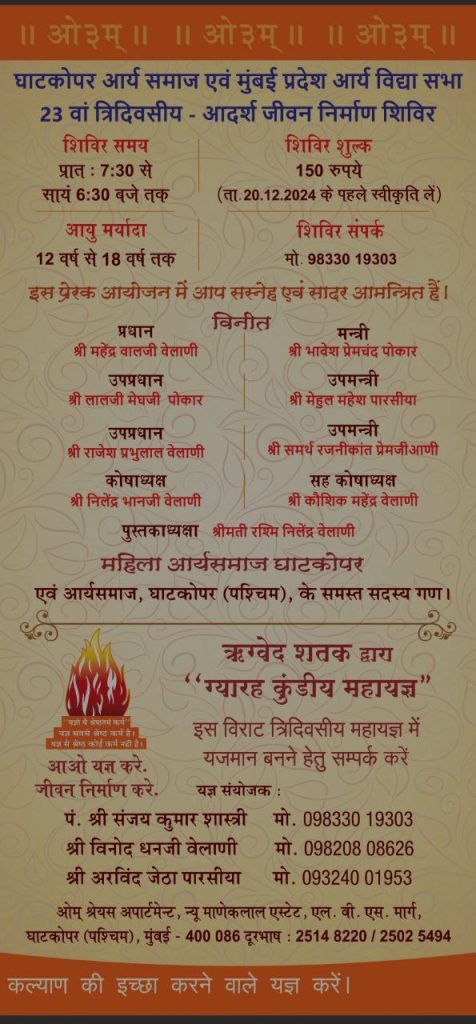 ॥ ओ३म् ॥ ॥ ओ३म् ॥ ॥ ओ३म् ॥
घाटकोपर आर्य समाज एवं मुंबई प्रदेश आर्य विद्या सभा
23 वां त्रिदिवसीय - आदर्श जीवन निर्माण शिविर
शिविर समय
प्रात : 7:30 से
सायं 6:30 बजे तक
शिविर शुल्क
150 रुपये
(ता.20.12.2024 के पहले स्वीकृति लें)
आयु मर्यादा
12 वर्ष से 18 वर्ष तक
शिविर संपर्क
मो. 98330 19303
इस प्रेरक आयोजन में आप सस्नेह एवं सादर आमन्त्रित हैं।
विनीत
प्रधान
श्री महेंद्र वालजी वेलाणी
मन्त्री
श्री भावेश प्रेमचंद पोकार
उपप्रधान
श्री लालजी मेघजी पोकार
उपमन्त्री
श्री मेहुल महेश पारसीया
उपप्रधान
श्री राजेश प्रभुलाल वेलाणी
उपमन्त्री
श्री समर्थ रजनीकांत प्रेमजीआणी
कोषाध्यक्ष
श्री निलेंद्र भानजी वेलाणी
सह कोषाध्यक्ष
श्री कौशिक महेंद्र वेलाणी
पुस्तकाध्यक्षा श्रीमती रश्मि निलेंद्र वेलाणी
महिला आर्यसमाज घाटकोपर
एवं आर्यसमाज, घाटकोपर (पश्चिम), के समस्त सदस्य गण।
ऋग्वेद शतक द्वारा
‘‘ग्यारह कुंडीय महायज्ञ”
इस विराट त्रिदिवसीय महायज्ञ में
यजमान बनने हेतु सम्पर्क करें
"यज्ञो वै श्रेष्ठतमं कर्म"
यज्ञ सबसे श्रेष्ठ कर्म है।
यज्ञ से श्रेष्ठ कोई कर्म नहीं है।
आओ यज्ञ करे.
जीवन निर्माण करे.
यज्ञ संयोजक :
पं. श्री संजय कुमार शास्त्री मो. 098330 19303
श्री विनोद धनजी वेलाणी मो. 098208 08626
श्री अरविंद जेठा पारसीया मो. 093240 01953
ओम् श्रेयस अपार्टमेन्ट, न्यू माणेकलाल एस्टेट, एल. बी. एस. मार्ग,
घाटकोपर (पश्चिम), मुंबई - 400 086 दूरभाष : 2514 8220 / 2502 5494
कल्याण की इच्छा करने वाले यज्ञ करें।